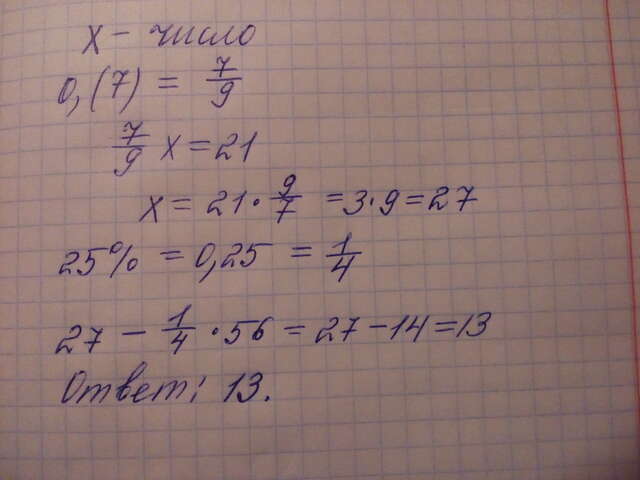 x – число
0,(7) = 7/9
7/9 x = 21
x = 21 · 9/7 = 3·9 = 27
25% = 0,25 = 1/4
27 – 1/4 · 56 = 27 – 14 = 13
Ответ: 13.